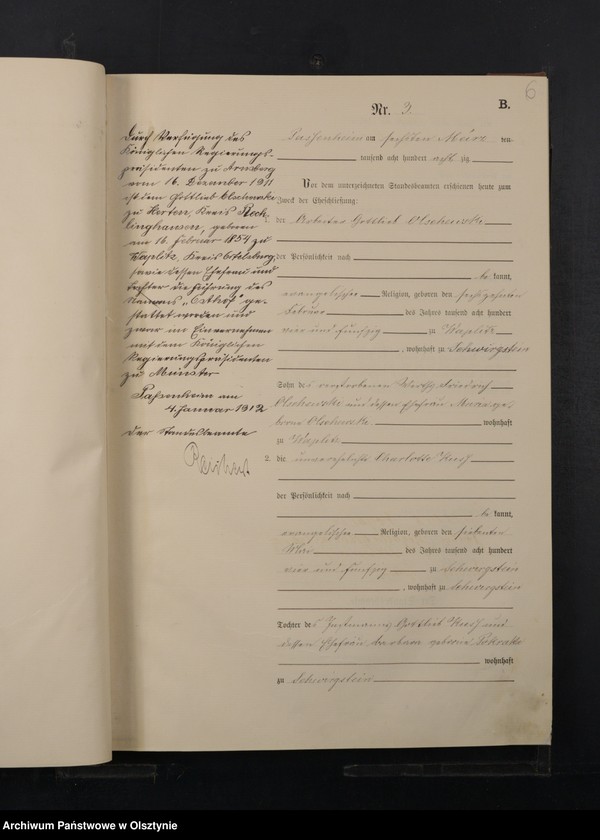 6
Nr. 3
B.
Durch Verfügung des
Königlichen Regierungs-
präsidenten zu Arnsberg
vom 16. Dezember 1911
ist dem Gottlieb Olschewske
zu Herten, Kreis Reck-
linghausen, geboren
am 16. Februar 1854 zu
Waplitz, Kreis Ortelsburg,
sowie dessen Ehefrau und
Tochter die Führung des
Namens „Osthof“ ge-
stattet worden und
zwar im Einvernehmen
mit dem Königlichen
Regierungspräsidenten
zu Münster
Passenheim am
4. Januar 1912
Der Standesbeamte
Passenheim am sechsten März
tausend acht hundert acht zig
Vor dem unterzeichneten Standesbeamten erschienen heute zum
Zweck der Eheschließung:
der Arbeiter Gottlieb Olschewske
der Persönlichkeit nach
be kannt,
evangelischer Religion, geboren den sechszehnten
Februar des Jahres tausend acht hundert
vier und fünfzig zu Waplitz
, wohnhaft zu Schwirgstein
Sohn des verstorbenen Friedrich
Olschewske und dessen Ehefrau ge-
borne Olschewske wohnhaft
zu Waplitz
2. die unverehelichte Charlotte
der Persönlichkeit nach
be kannt,
evangelischer Religion, geboren den siebenten
des Jahres tausend acht hundert
vier und fünfzig zu Schwirgstein
, wohnhaft zu Schwirgstein
Tochter des Gottlieb und
dessen Ehefrau Barbara geborne
wohnhaft
zu Schwirgstein
Archiwum Państwowe w Olsztynie